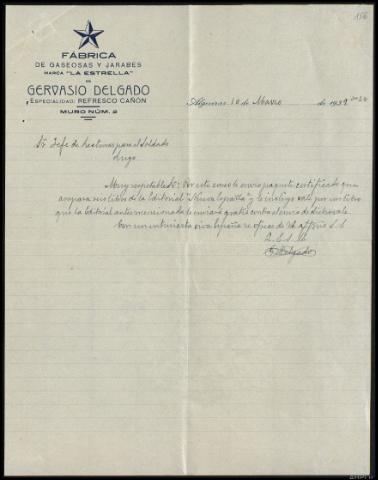 156
FÁBRICA
DE GASEOSAS Y JARABES
MARCA "LA ESTRELLA"
DE
GERVASIO DELGADO
ESPECIALIDAD: REFRESCO CAÑÓN
MURO NÚM. 2
Algeciras 10 de Marzo de 1939
Sr. Jefe de Lecturas para el Soldado
Lugo
Muy respetable Sr: Por este correo le envio paquete certificado que
ampara seis libros de la Editorial "Nueva España" y le incluyo vale por un libro
que la Editorial antes mencionada le enviará gratis contra el envio de dicho vale.
Con un entusiasta viva España se ofrece de Vd. affmo S.S.
Q.E.S.M.
G Delgado